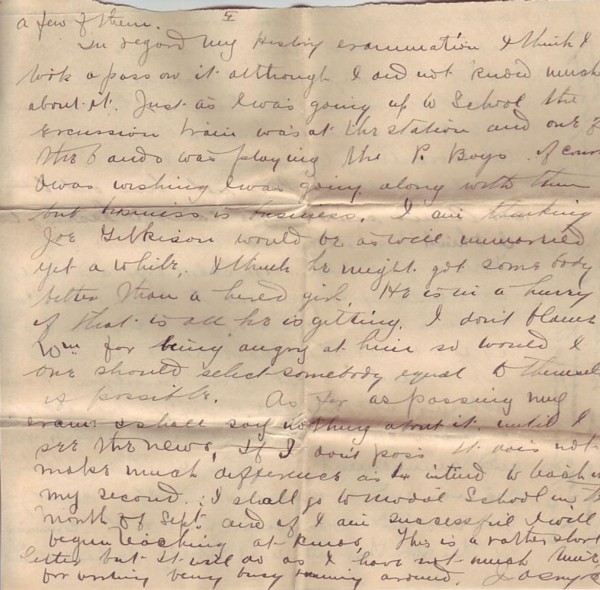 a few of them. 5
In regard my History examination I think I
took a pass on it although I did not know much
about it. Just as I was going up to School the
excursion train was at the station and one of
the bands was playing the P. Boys. of cours
I was wishing I was going along with them
but business is business. I am thinking
Joe Gilkison would be as well unmarried
yet a while, I think he might get some body
better than a hired girl. He is in a hurry
if that is all he is getting. I don't blame
Wm for being angry at him so would I
one should select somebody equal to themsel
if possible. As far as passing my
exams I shall say nothing about it until I
see the news, If I don't pass it does not
make much difference as I intend to teach
my second. I shall go to Model School in the
month of Sept. and if I am successful I will
begin teaching at This is a rather short
letter but it will do as I have not much time
for writing being busy running around.